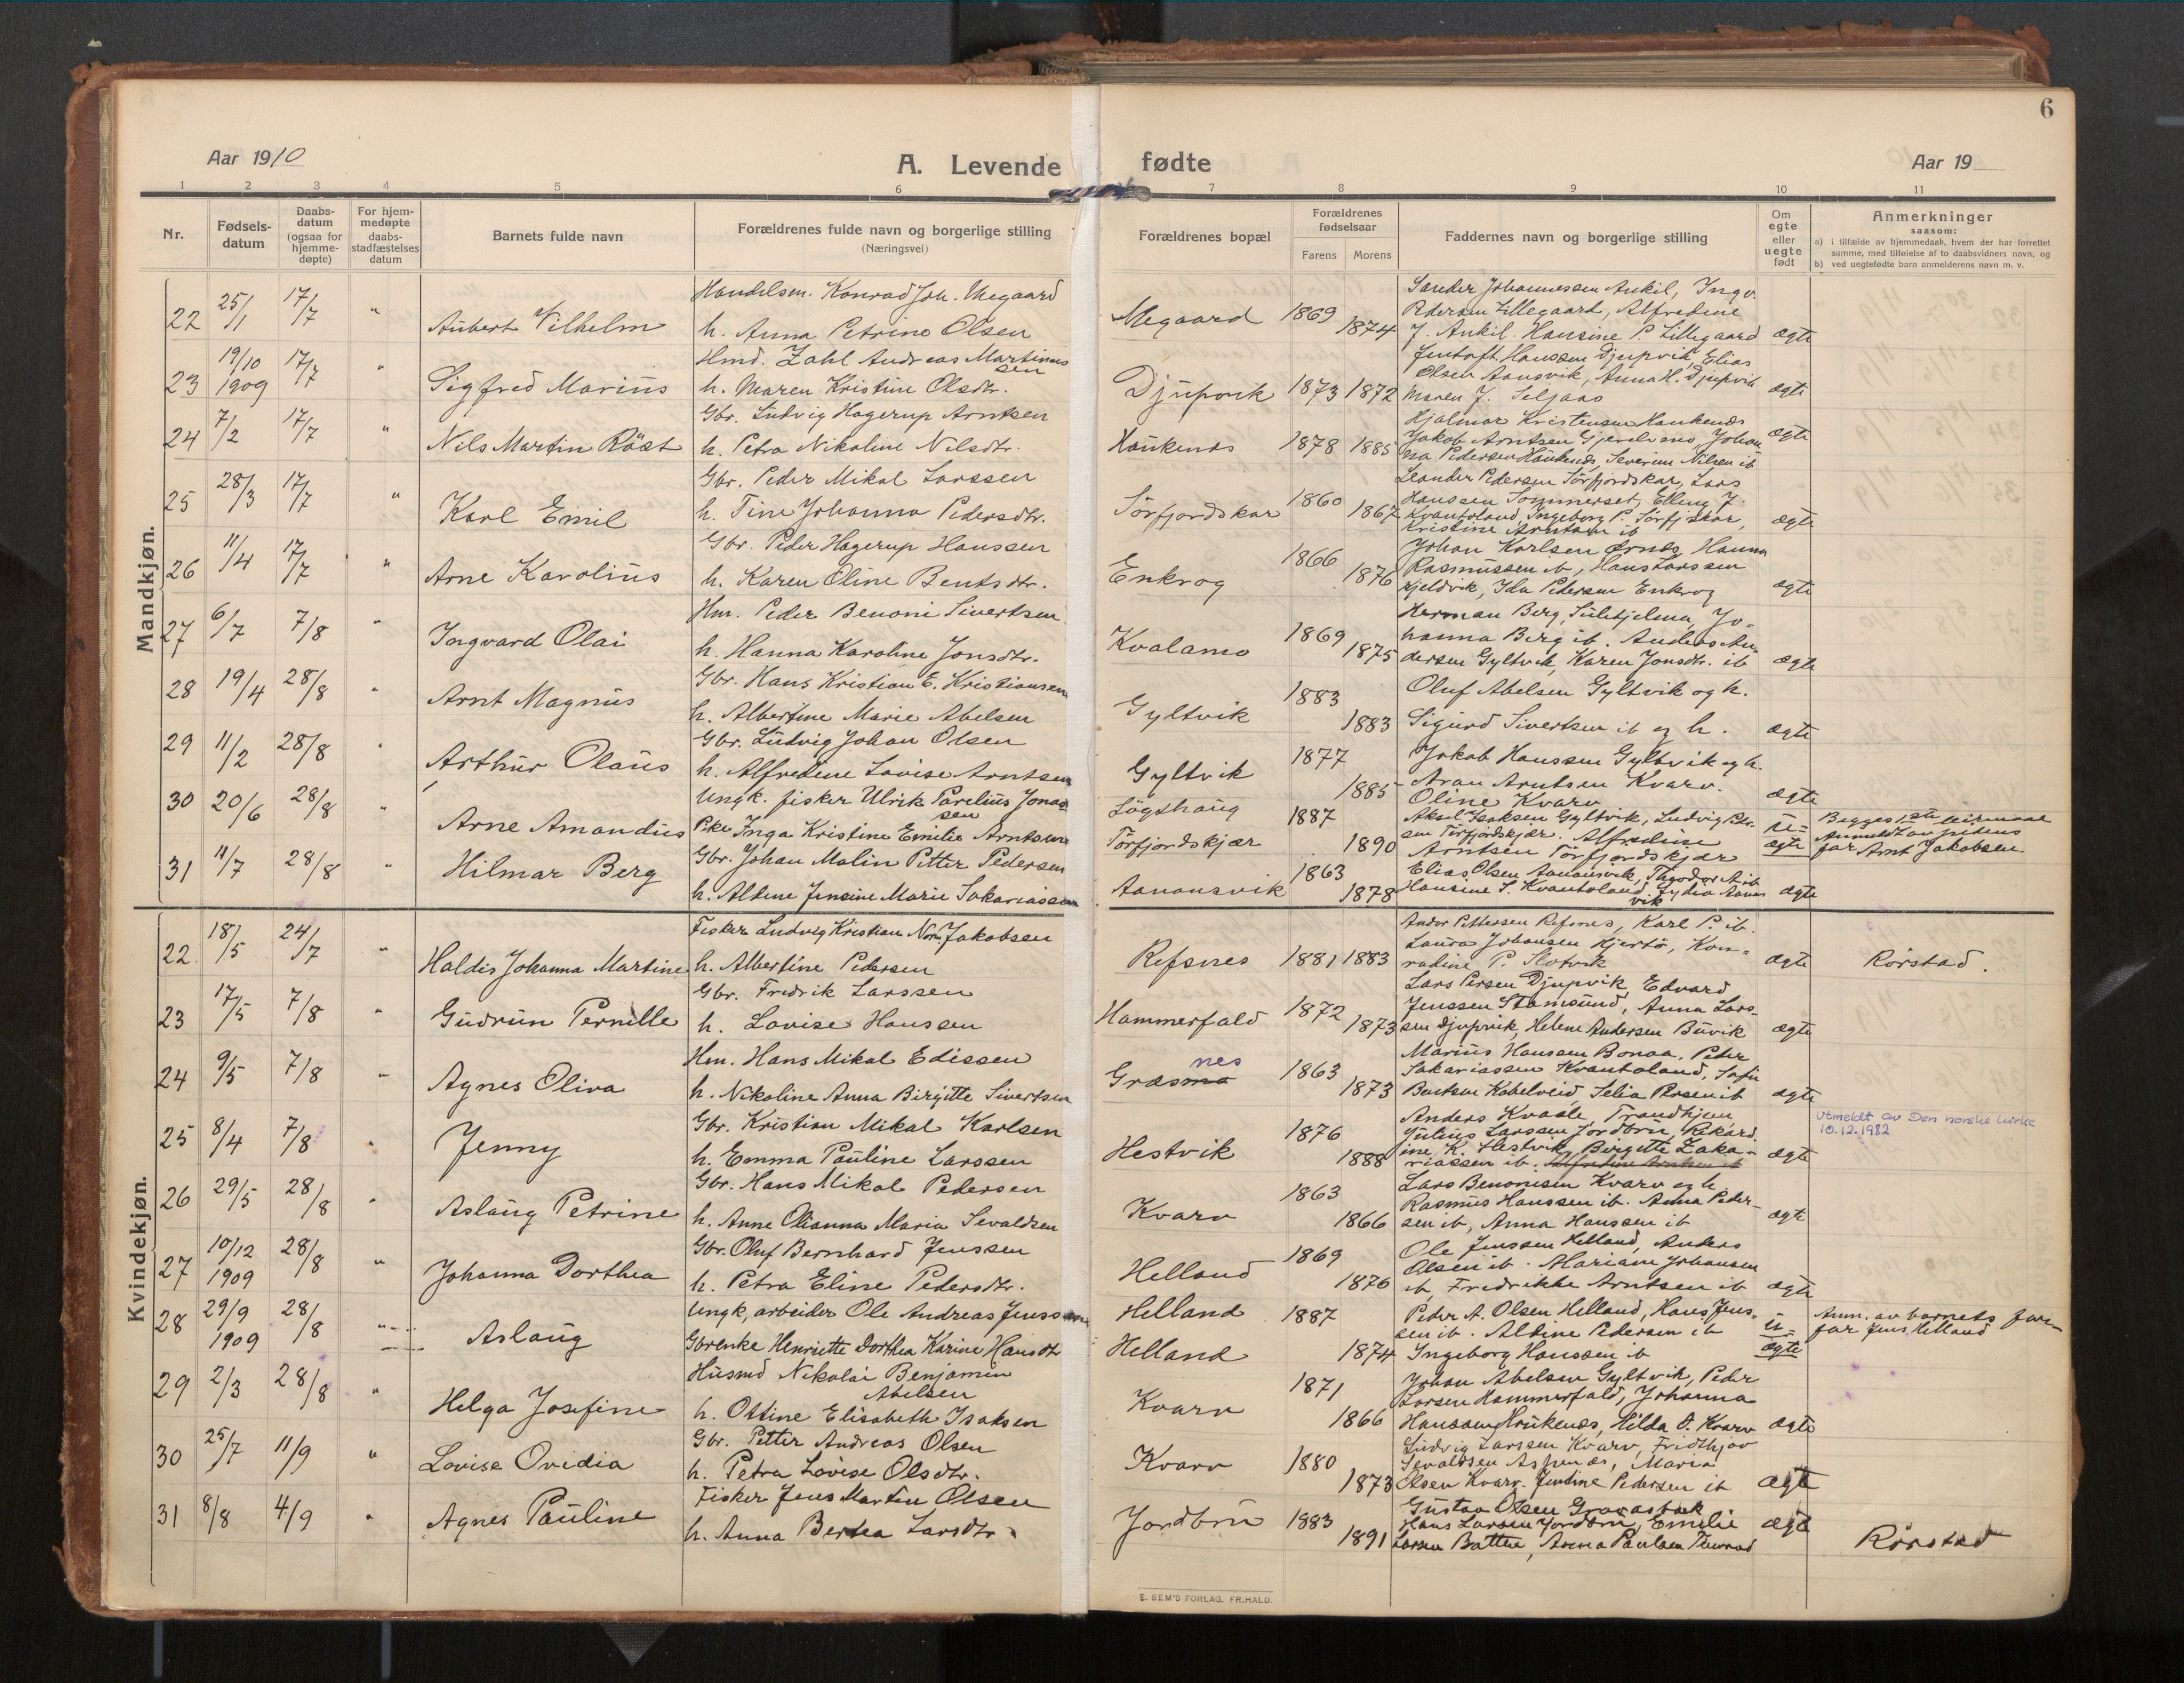 6
Aar 1910
A. Levende
fødte
Aar 19
1 2 3 4 5 6 7 8 9 10 11
Nr.
Fødsels-
datum
Daabs-
datum
(ogsaa for
hjemme-
døpte)
For hjem-
medøpte
daabs-
stadfæstelses
datum
Barnets fulde navn
Forældrenes fulde navn og borgerlige stilling
(Næringsvei)
Forældrenes bopæl
Forældrenes
fødselsaar
Farens Morens
Faddernes navn og borgerlige stilling
Om
egte
eller
uegte
født
Anmerkninger
saasom:
a) i tilfælde av hjemmedaab, hvem der har forrettet
samme, med tilføielse af to daabsvidners navn, og
b) ved uegtefødte barn anmelderens navn m. v.
Mandkjøn.
22 25/1 17/7 " Aubert Vilhelm
Handelsm. Konrad Joh. Megaard
h. Anna Petrine Olsen
Megaard 1869 1874
Sander Johannessen Ankil, Ingv.
Pedersen Lillegaard, Alfredine
J. Ankil. Hansine P. Lillegaard
ægte
23 19/10 1909 17/7 " Sigfred Marius
Hmd. Zahl Andreas Martinus
sen
h. Maren Kristine Olsdtr.
Djupvik 1873 1872
Jentoft Hanssen Djupvik, Elias
Olsen Aansvik, Anna H. Djupvik
Maren J. Seljaas
ægte
24 7/2 17/7 " Nils Martin Röst
Gbr. Ludvig Hagerup Arntsen
h. Petra Nikoline Nilsdtr.
Haukenes 1878 1885
Hjalmar Kristensen Haukenes
Jakob Arntsen Gjerelvnes, Johan
na Pedersen Haukenes, Severine Nilsen ib
ægte
25 28/3 17/7 " Karl Emil
Gbr. Peder Mikal Larssen
h. Tine Johanna Pedersdtr.
Sörfjordskar 1860 1867
Leander Pedersen Sörfjordskar, Lars
Hanssen Sommerset, Elling J.
Kvantoland, Ingeborg P. Sörfj skar,
Kristine Arntsen ib
ægte
26 11/4 17/7 " Arne Karolius
Gbr. Peder Hagerup Hanssen
h. Karen Oline Bentsdtr.
Enkrog 1866 1876
Johan Karlsen Ørnes, Hanna
Rasmussen ib, Hans Larssen
Kjeldvik, Ida Pedersen Enkrog
ægte
27 6/7 7/8 " Ingvard Olai
Hm. Peder Benoni Sivertsen
h. Hanna Karoline Jonsdtr.
Kvalamo 1869 1875
Herman Berg, Sulitjelma, Jo-
hanna Berg ib. Anders An-
dersen Gyltvik, Karen Jonsdtr. ib
ægte
28 19/4 28/8 " Arnt Magnus
Gbr. Hans Kristian E. Kristiansen
h. Albertine Marie Abelsen
Gyltvik 1883 1883
Oluf Abelsen Gyltvik og h.
Sigurd Sivertsen ib og h.
ægte
29 11/2 28/8 " Arthur Olaus
Gbr. Ludvig Johan Olsen
h. Alfredine Lovise Arntsen
Gyltvik 1877 1885
Jakob Hanssen Gyltvik og h.
Aron Arntsen Kvarv.
Oline Kvarv
ægte
30 20/6 28/8 " Arne Amandus
Ungk. fisker Ulrik Parelius Jonas
sen
Pike Inga Kristine Emilie Arntsen
Lögshaug
Törfjordskjær
1887 1890
Aksel Isaksen Gyltvik, Ludvig Peder-
sen Törfjordskjær. Alfredine
Arntsen Törfjordskjær
u-
ægte
Begges 1ste leiermaal
Anmeldt av pikens
far Arnt Jakobsen.
31 11/7 28/8 " Hilmar Berg
Gbr. Johan Malin Petter Pedersen
h. Aldine Jensine Marie Sakariassen
Aanansvik 1863 1878
Elias Olsen Aanansvik, Thoodor A. ib
Hansine S. Kvantoland, Lydia Aanans
vik
ægte
Kvindekjøn.
22 18/5 24/7 " Haldis Johanna Martine
Fisker Ludvig Kristian Nor. Jakobsen
h. Albertine Pedersen
Refsnes 1881 1883
Andor Pettersen Refsnes, Karl P. ib.
Laura Johansen Hjertö, Kon-
radine P. Slotvik
ægte
Rörstad.
23 17/5 7/8 " Gudrun Pernille
Gbr. Fredrik Larssen
h. Lovise Hanssen
Hammerfald 1872 1873
Lars Persen Djupvik, Edvard
Jenssen Stamsund, Anna Lars-
sen Djupvik, Helene Andersen Buvik
ægte
24 9/5 7/8 " Agnes Oliva
Hm. Hans Mikal Edissen
h. Nikoline Anna Birgitte Sivertsen
nes
Græsmo 1863 1873
Marius Hanssen Bonaa, Peder
Sakariassen Kvantoland, Sofie
Bentsen Kobelveid, Selia Persen ib
ægte
25 8/4 7/8 " Jenny
Gbr. Kristian Mikal Karlsen
h. Emma Pauline Larssen
Hestvik 1876 1888
Anders Kvaale, Trondhjem,
Julius Larssen Jordbru, Rikard
ine K. Hestvik, Birgitte Zaka-
riassen ib. Alfredine Arntsen ib
ægte
Utmeldt av Den norske kirke
10.12.1982
26 29/5 28/8 " Aslaug Petrine
Gbr. Hans Mikal Pedersen
h. Anne Olianna Maria Sevaldsen
Kvarv 1863 1866
Lars Benonisen Kvarv og h.
Rasmus Hanssen ib. Anna Peder-
sen ib, Anna Hanssen ib
ægte
27 10/12 1909 28/8 " Johanna Dorthea
Gbr. Oluf Bernhard Jenssen
h. Petra Eline Pedersdtr.
Helland 1869 1876
Ole Jenssen Helland, Anders
Olsen ib. Mariam Johansen
ib, Fredrikke Arntsen ib
ægte
28 29/9 1909 28/8 " Aslaug
Ungk, arbeider Ole Andreas Jenssen
Gbrenke Henriette Dorthea Karine Hansdtr
Helland 1887
Helland 1874
Peder A. Olsen Helland, Hans Jens-
sen ib. Aldine Pedersen ib
Ingeborg Hanssen ib
u-
ægte
Anm. av barnets far-
far Jens Helland
29 2/3 28/8 " Helga Josefine
Husmd Nikolai Benjamin
Abelsen
h. Ottine Elisabeth Isaksen
Kvarv 1871 1866
Johan Abelsen Gyltvik, Peder
Larsen Hammerfald, Johanna
Hanssen Haukenes, Hilda O. Kvarv
ægte
30 25/7 11/9 " Lovise Ovidia
Gbr. Petter Andreas Olsen
h. Petra Lovise Olsdtr.
Kvarv 1880 1873
Ludvig Larssen Kvarv, Fridthjov
Sevaldsen Aspenes, Maria
Olsen Kvarv. Jendine Pedersen ib
ægte
31 8/8 4/9 " Agnes Pauline
Fisker Jens Martin Olsen
h. Anna Bertea Larsdtr.
Jordbru 1883 1891
Gustav Olsen
Hans Larsen Jordbru, Emelie
Larsen Batten, Anna Paulsen
ægte
Rörstad
E. SEM'S FORLAG, FR.HALD.